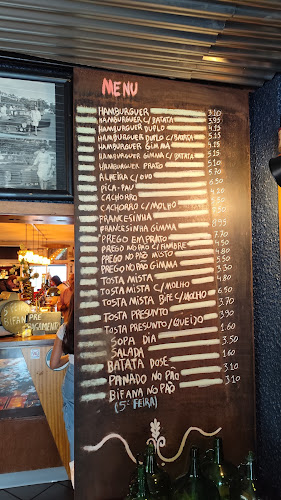 MENU
HAMBURGUER 3.10
HAMBURGUER C/BATATA 3.95
HAMBURGUER DUPLO 4.15
HAMBURGUER DUPLO C/BATATA 5.25
HAMBURGUER GIMMA 4.15
HAMBURGUER GIMMA C/BATATA 5.15
HAMBURGUER PRATO
ALHEIRA C/OVO
PICA-PAU
CACHORRO
CACHORRO C/MOLHO
FRANCESINHA
FRANCESINHA GIMMA 8.95
PREGO EM PRATO 7.70
PREGO NO PÃO C/FIAMBRE 4.50
PREGO NO PÃO MISTO
PREGO NO PÃO GIMMA
TOSTA MISTA
TOSTA MISTA C/MOLHO
TOSTA MISTA BIFE C/MOLHO
TOSTA PRESUNTO 3.70
TOSTA PRESUNTO C/QUEIJO 3.90
SOPA DIA 1.60
SALADA 1.50
BATATA DOSE
PANADO NO PÃO 3.10
BIFANA NO PÃO 3.10
(5ª FEIRA)
BIFAN
PRE
PAGAMENTO